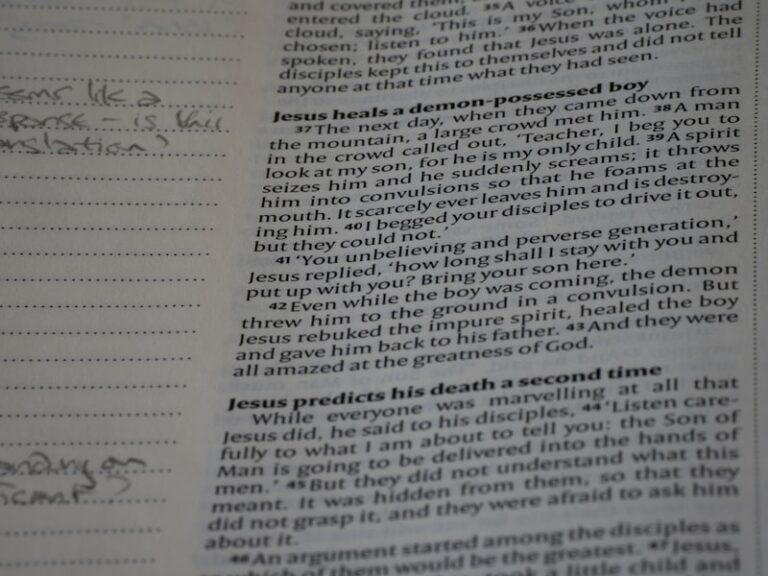 and covered them,
entered the cloud. 35A voice
cloud, saying, 'This is my Son, whom
chosen; listen to him.' 36When the voice had
spoken, they found that Jesus was alone. The
disciples kept this to themselves and did not tell
anyone at that time what they had seen.
Jesus heals a demon-possessed boy
37The next day, when they came down from
the mountain, a large crowd met him. 38A man
in the crowd called out, 'Teacher, I beg you to
look at my son, for he is my only child. 39A spirit
seizes him and he suddenly screams; it throws
him into convulsions so that he foams at the
mouth. It scarcely ever leaves him and is destroy-
ing him. 40I begged your disciples to drive it out,
but they could not.'
41'You unbelieving and perverse generation,'
Jesus replied, 'how long shall I stay with you and
put up with you? Bring your son here.'
42Even while the boy was coming, the demon
threw him to the ground in a convulsion. But
Jesus rebuked the impure spirit, healed the boy
and gave him back to his father. 43And they were
all amazed at the greatness of God.
Jesus predicts his death a second time
While everyone was marvelling at all that
Jesus did, he said to his disciples, 44'Listen care-
fully to what I am about to tell you: the Son of
Man is going to be delivered into the hands of
men.' 45But they did not understand what this
meant. It was hidden from them, so that they
did not grasp it, and they were afraid to ask him
about it.
46An argument started among the disciples as
which of them would be the greatest. 47Jesus,
took a little child and
like a
is this